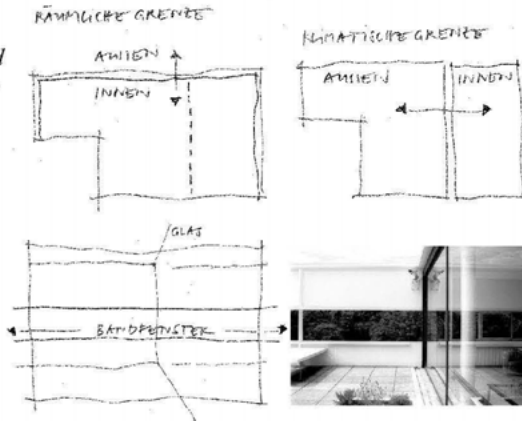 RÄUMLICHE GRENZE
AUSSEN
INNEN
KLIMATISCHE GRENZE
AUSSEN
INNEN
GLAS
BANDFENSTER